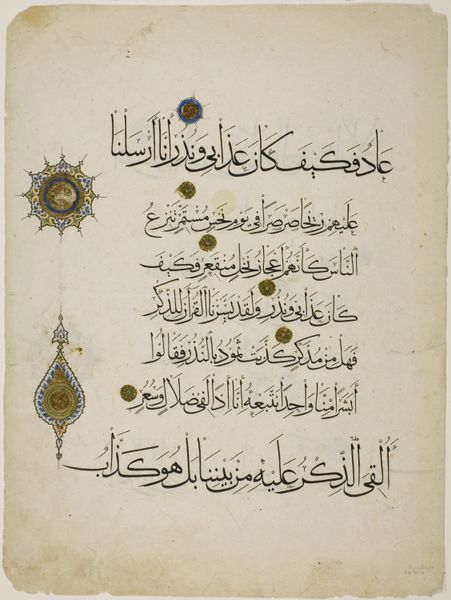 عاد فكيف كان عذابي ونذر انا أرسلنا
عليهم ريحا صرصرا في يوم نحس مستمر تنزع
الناس كأنهم أعجاز نخل منقعر فكيف
كان عذابي ونذر ولقد يسرنا القرآن للذكر
فهل من مدكر كذبت ثمود بالنذر فقالوا
أبشرا منا واحدا نتبعه انا إذا لفي ضلال وسعر
أألقي الذكر عليه من بيننا بل هو كذاب